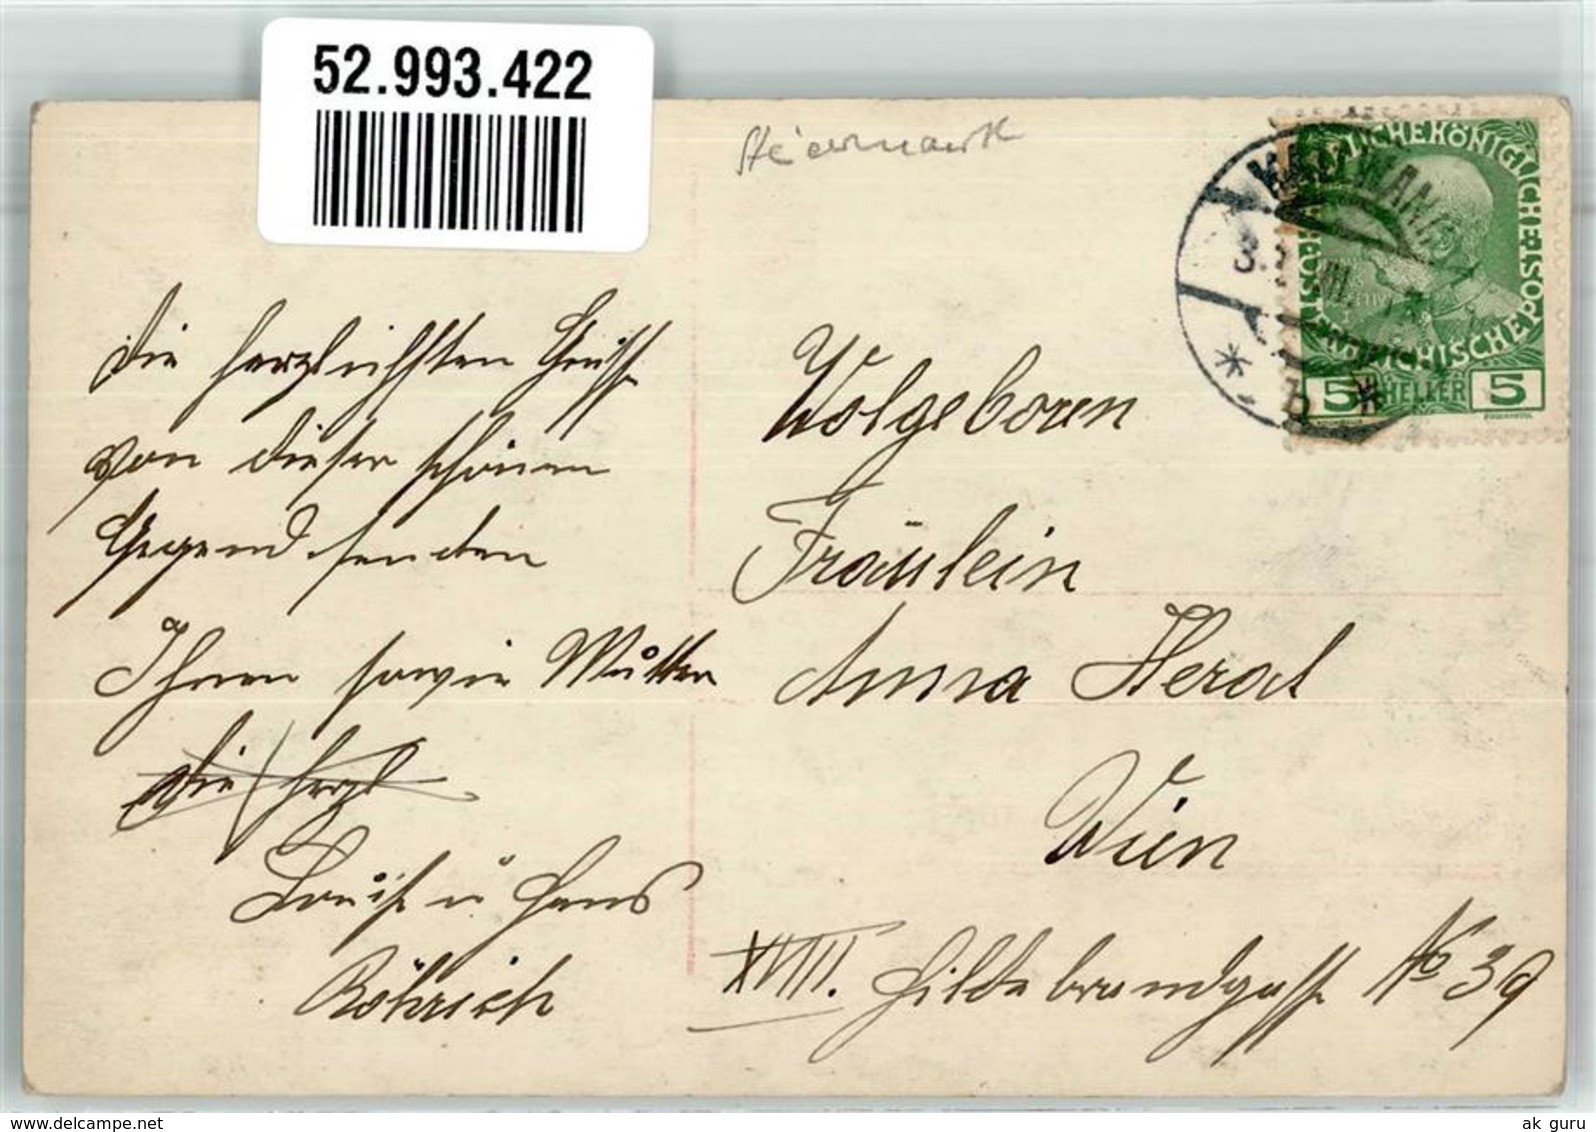 52.993.422
Steiermark
KAISERLICHE KÖNIGLICHE ÖSTERREICHISCHE POST
5 HELLER 5
b
Die herzlichsten Grüsse
von dieser schönen
Gegend senden
Ihnen sowie Mutter
die herzl
Louise u Hans
Röhrich
Wolgeboren
Fräulein
Anna Herol
Wien
XVIII. Hildebrandgasse No 39
www.delcampe.net
ak_guru